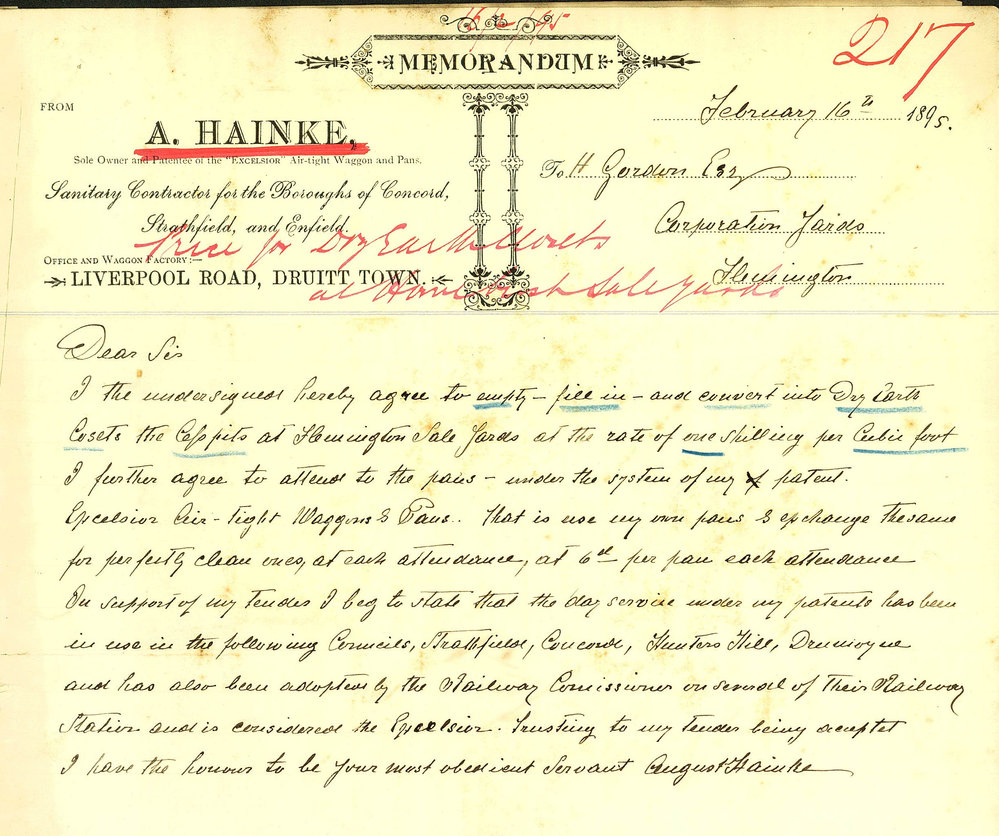 16/2/95
217
MEMORANDUM
FROM
A. HAINKE,
Sole Owner and Patentee of the "EXCELSIOR" Air-tight Waggon and Pans.
Sanitary Contractor for the Boroughs of Concord,
Strathfield, and Enfield.
OFFICE AND WAGGON FACTORY:—
LIVERPOOL ROAD, DRUITT TOWN.
February 16th 1895.
To H Gordon Esq
Corporation Yards
Flemington
Price for Dry Earth Closets
at Homebush Sale yards
Dear Sir
I the undersigned hereby agree to empty – fill in – and convert into Dry Earth
Cosets the Cesspits at Flemington Sale Yards at the rate of one shilling per Cubic foot
I further agree to attend to the pans – under the system of my patent.
Excelsior Air-tight Waggons & Pans. That is use my own pans & exchange the same
for perfectly clean ones, at each attendance, at 6d per pan each attendance
In support of my tender I beg to state that the day service under my patents has been
in use in the following Councils, Strathfield, Concord, Hunters Hill, Drumoyne
and has also been adopted by the Railway Comissioner on several of their Railway
Station and is considered the Excelsior. Trusting to my tender being accepted
I have the honour to be your most obedient Servant August Hainke